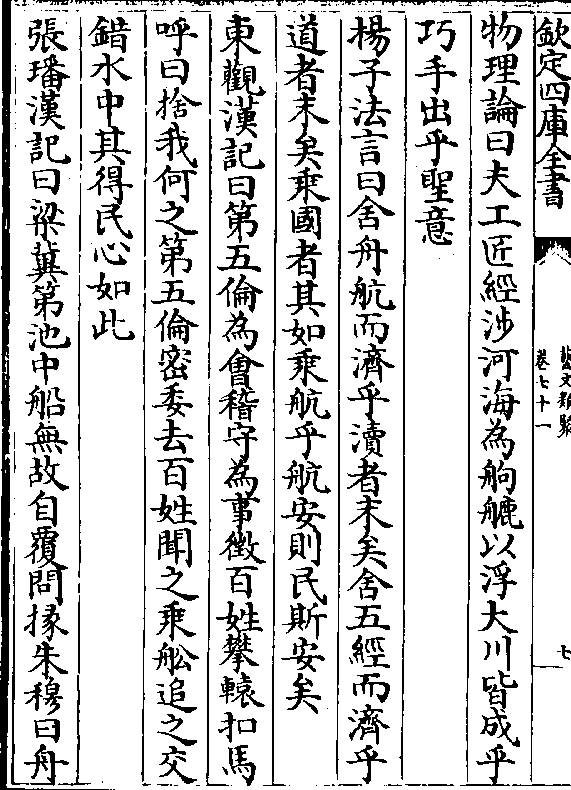 欽定四庫全書
藝文類聚
卷七十一
七
物理論曰夫工匠經涉河海為舸艫以浮大川皆成乎
巧手出乎聖意
楊子法言曰舍舟航而濟乎瀆者末矣舍五經而濟乎
道者末矣乘國者其如乘航乎航安則民斯安矣
東觀漢記曰第五倫為會稽守為事徵百姓攀轅扣馬
呼曰捨我何之第五倫密委去百姓聞之乘舩追之交
錯水中其得民心如此
張璠漢記曰梁冀第池中船無故自覆問掾朱穆曰舟